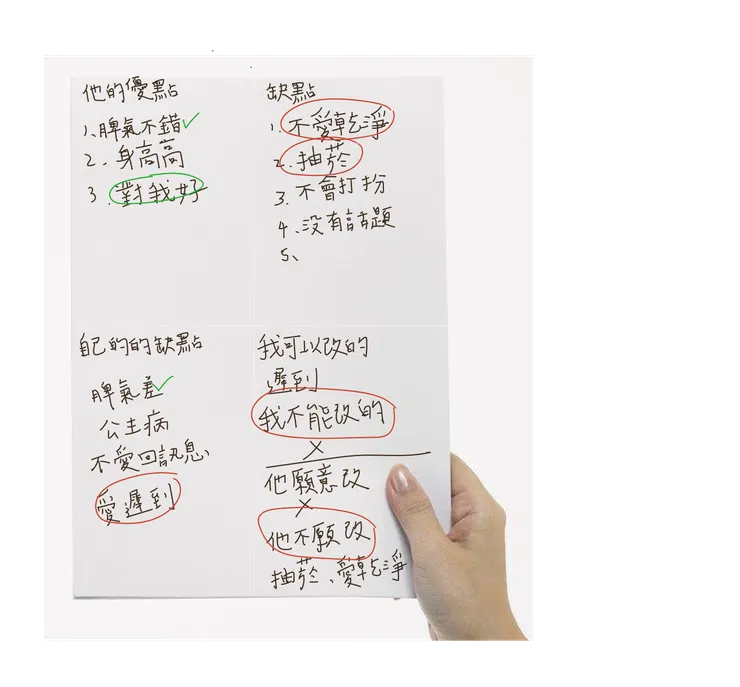 他的優點
1、脾氣不錯✓
2、身高高
3、對我好
缺點
1、不愛乾淨
2、抽菸
3、不會打扮
4、沒有話題
5、
自己的的缺點
脾氣差✓
公主病
不愛回訊息
愛遲到
我可以改的
遲到
我不能改的
X
他願意改
X
他不願改
抽菸、愛乾淨